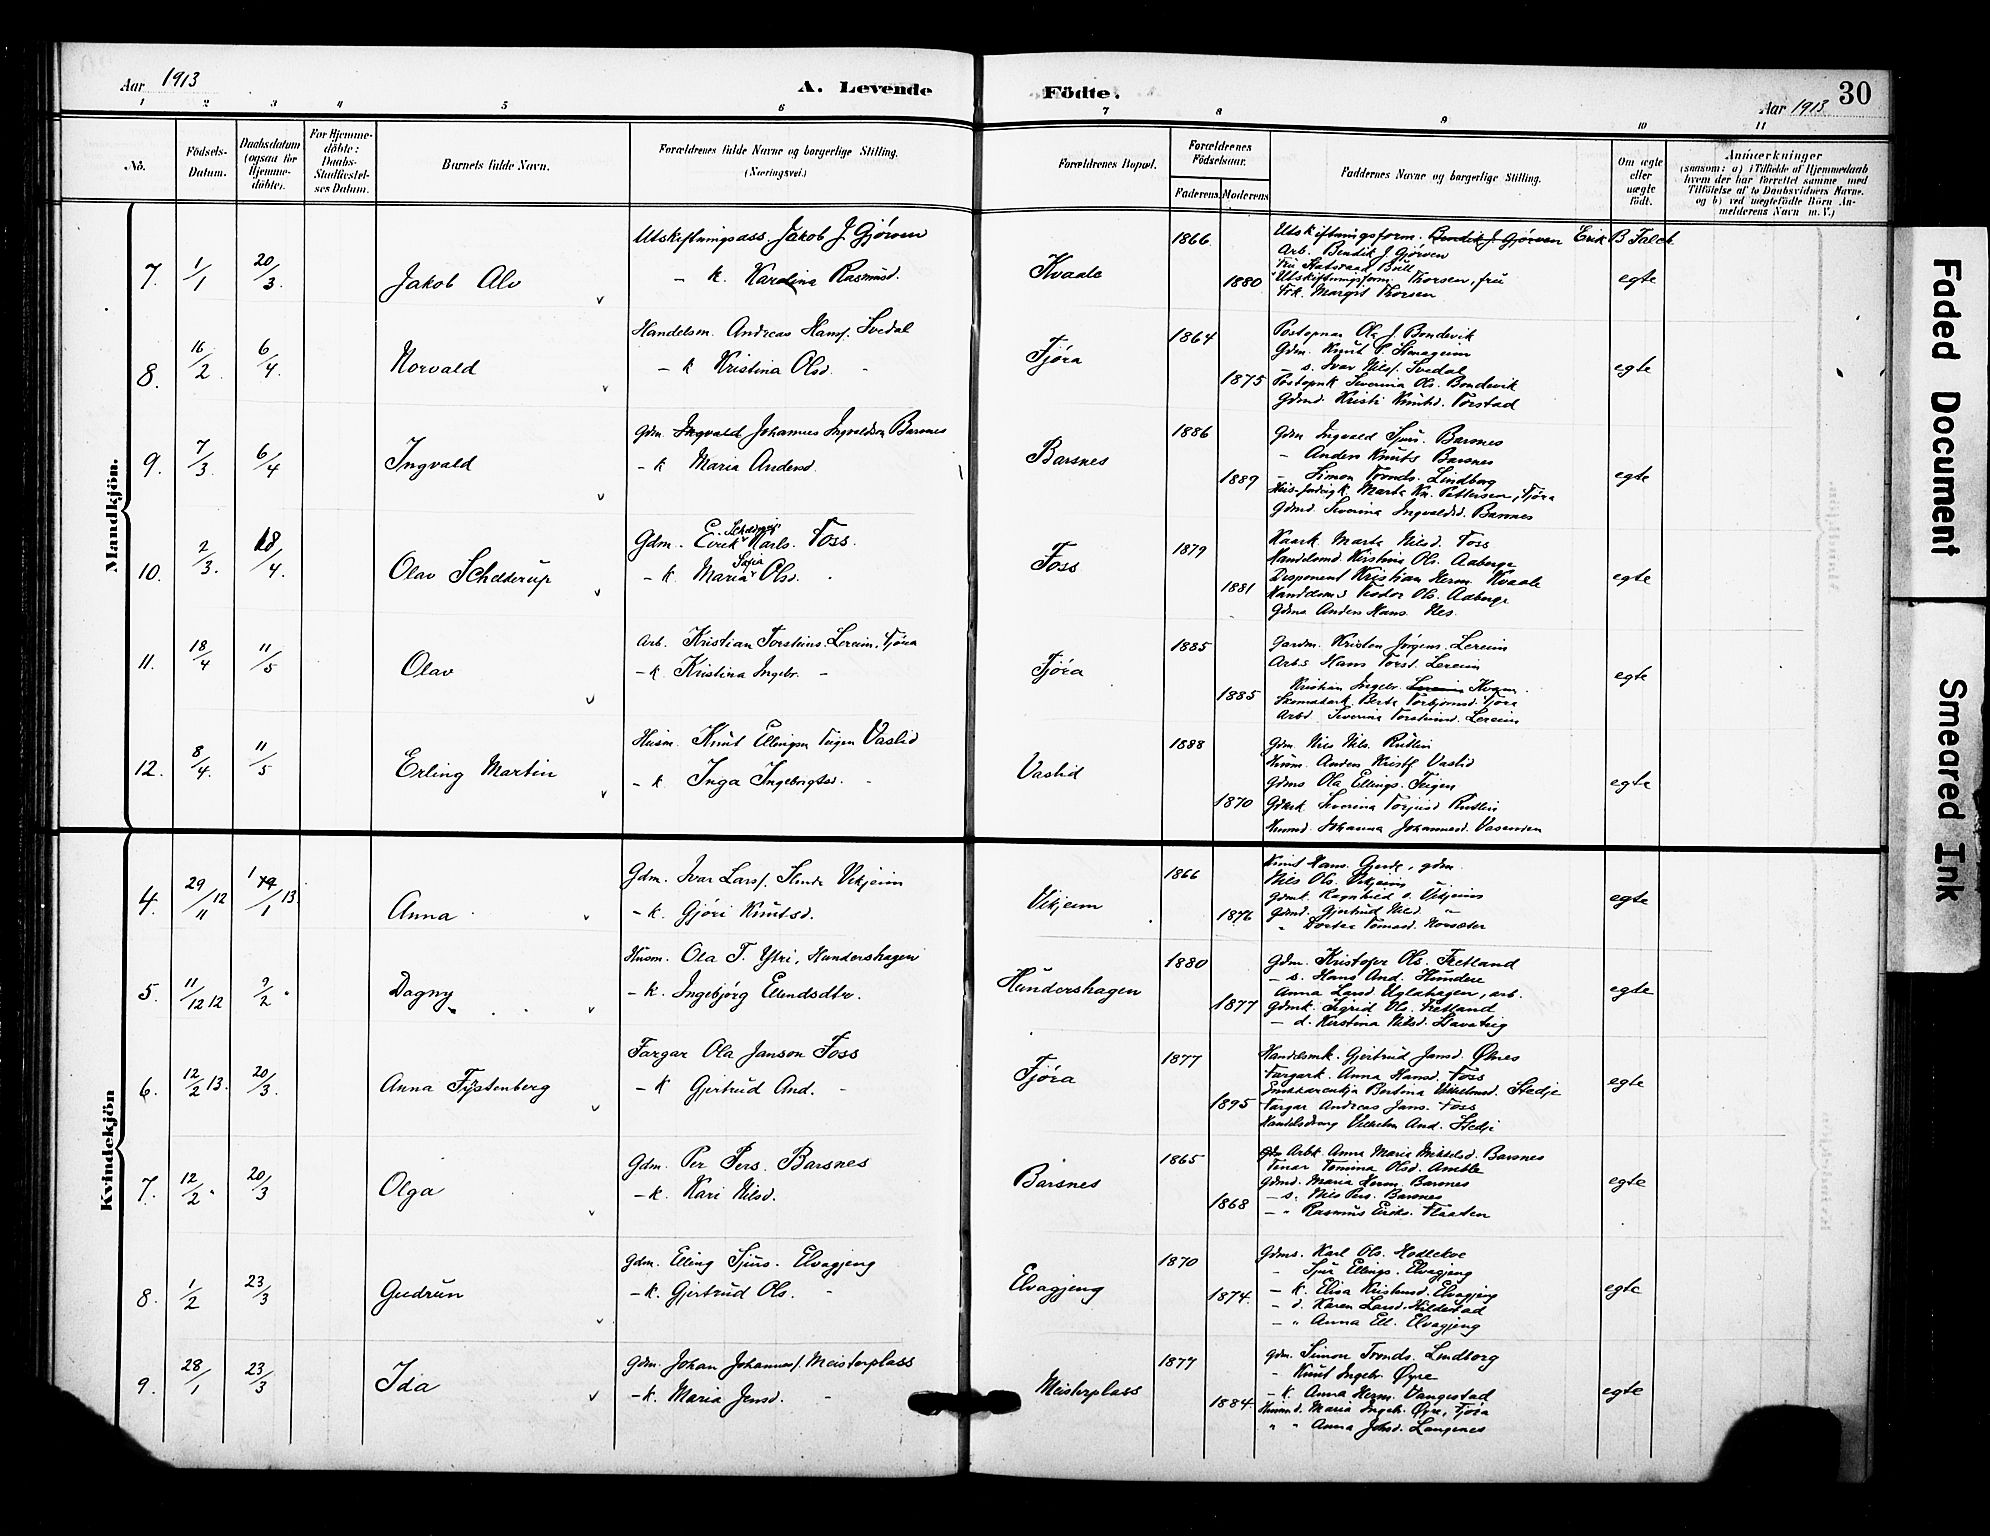 Aar 1913
A. Levende
Födte.
Aar 1913
30
1 2 3 4 5 6 7 8 9 10 11
No.
Födsels-
Datum.
Daabsdatum
(ogsaa for
Hjemme-
döbte).
For Hjemme-
döbte:
Daabs-
Stadfæstel-
ses Datum.
Barnets fulde Navn.
Forældrenes fulde Navne og borgerlige Stilling.
(Næringsvei.)
Forældrenes Bopæl.
Forældrenes
Födselsaar.
Faderens. Moderens.
Faddernes Navne og borgerlige Stilling.
Om ægte
eller
uægte
födt.
Anmærkninger
(saasom: a) i Tilfælde af Hjemmedaab
hvem der har forrettet samme med
Tilföielse af to Daabsvidners Navne.
og b) ved uægtefödte Börn An-
melderens Navn m. V.)
Mandkjön.
7. 1/1 20/3. Jakob Alv
Utskiftningsass. Jakob J. Gjørven
- k. Karolina Rasmusd.
Kvaale
1866
1880
Utskiftningsform. Bendik J. Gjørven Erik B Falch
Arb. Bendik J Gjörven
Fru Statsraad Bull
Utskiftningsform Thorsen, fru
Frk. Margit Thorsen
egte
8. 16/2 6/4. Norvald
Handelsm. Andreas Hansf. Svedal
- k Kristina Olsd. -
Fjóra
1864
1875
Postopnar Ola J. Bondevik
Gdm. Knut S. Stenageim
- s. Ivar Nilsf. Svedal
Postopnk Severina Ols. Bondevik
Gdmd. Kristi Knutsd. Torstad
egte
9. 7/3. 6/4 Ingvald
Gdm. Ingvald Johannes Ingvaldsen Barsnes
- k Maria Andersd.
Barsnes
1886
1889
Gdm Ingvald Sjurs. Barsnes
- Anders Knuts Barsnes
- Simon Tronds. Lindborg
Marta Kn. Pettersen, Fjóra
Gdmd Severina Ingvaldsd. Barsnes
egte
10. 2/3. 18/4. Olav Schelderup
Gdm. Eirik Karls. Foss.
- k. Maria Sofia Olsd.
Foss
1879
1881
Kaark. Marta Nilsd. Foss
Handelsmd Kirstine Ols. Aaberge
Disponent Kristian Herm. Kvaale
Handelsms Teodor Ols. Aaberge
Gdms Anders Hans. Nes.
egte
11. 18/4 11/5 Olav
Arb. Kristian Torsteins. Lereim, Fjóra
- k. Kristina Ingebr. -
Fjóra
1885
1885
Gardm. Kristen Jørgens. Lereim
Arbs Hans Torst. Lereim
Kristian Ingebr. Lereim Kvam
Skomakark. Berta Torbjørnsd. Fjóra
Arbd Severina Torsteinsd. Lereim
egte
12. 8/4. 11/5 Erling Martin
Husm. Knut Ellingsen Teigen Vaslid
- k Inga Ingebrigtsd. -
Vaslid
1888
1870
Gdm. Nils Nils. Rutlin
Husm. Anders Kristf Vaslid
Gdms Ola Ellings. Teigen
Gdmk Severina Torjusd Rutlin
Husmd. Johanna Johannesd. Vasenden
egte
Kvindekjön
4. 29/11 12 Anna
Gdm. Ivar Larsf. Slinde Vikjeim
- k. Gjóri Knutsd.
Vikjeim
1866
1876
Knut Hans. Gjerde, gdm.
Nils Ols. Vikjeim
Gdmk. Ragnhild O. Vikjeim
Gdmd. Gjertrud Nilsd "
" Dortea Tomasd. Horsæter
egte
5. 11/12 12 9/2 Dagny
Husm. Ola T. Ytri, Hundershagen
- k. Ingebjørg Ellendsdtr.
Hundershagen
1880
1877
Gdm. Kristofer Ols. Fretland
- s. Hans And. Hundere
Anna Larsd. Uglahagen, arb.
Gdmk. Sigrid Ols. Fretland
- d. Kirstina Nilsd. Stavateig
egte
6. 12/2 13. 20/3. Anna Fystenberg
Fargar Ola Janson Foss
- k Gjertrud And. -
Fjóra
1877
1895
Handelsmk. Gjertrud Jansd. Ølnes
Fargark. Anna Hansd. Foss
Bertina Vilhelmsd. Stedje
Fargar Andreas Jans. Foss
Handelsdreng Vilhelm And. Stedje
egte
7. 12/2 20/3 Olga
Gdm. Per Pers. Barsnes
- k. Kari Nilsd.
Barsnes
1865
1868
Gdm Arbk. Anna Maria Mikkelsd. Barsnes
Tenar Tomina Olsd. Amble
Gdmd. Maria Herm. Barsnes
- s. Nils Pers. Barsnes
- " Rasmus Eriks. Flaaten
egte
8. 1/2 23/3 Gudrun
Gdm. Elling Sjurs. Elvagjeng
- k. Gjertrud Ols. -
Elvagjeng
1870
1874.
Gdms. Karl Ols. Hodlekve
- Sjur Ellings. Elvagjeng
- k. Elisa Kristensd. Elvagjeng
- d. Karen Larsd. Hildestad
- " Anna Ell. Elvagjeng
egte
9. 28/1 23/3 Ida
Gdm. Johan Johannesf. Meisterplass
- k. Maria Jensd. -
Meisterplass
1877
1884.
Gdm. Simon Tronds. Lindborg
- Knut Ingebr. Øyre
- k. Anna Herm. Vangestad
Husmd. Maria Ingebr. Øyre, Fjóra
" " Anna Johsd. Langenes
egte
Faded Document
Smeared Ink